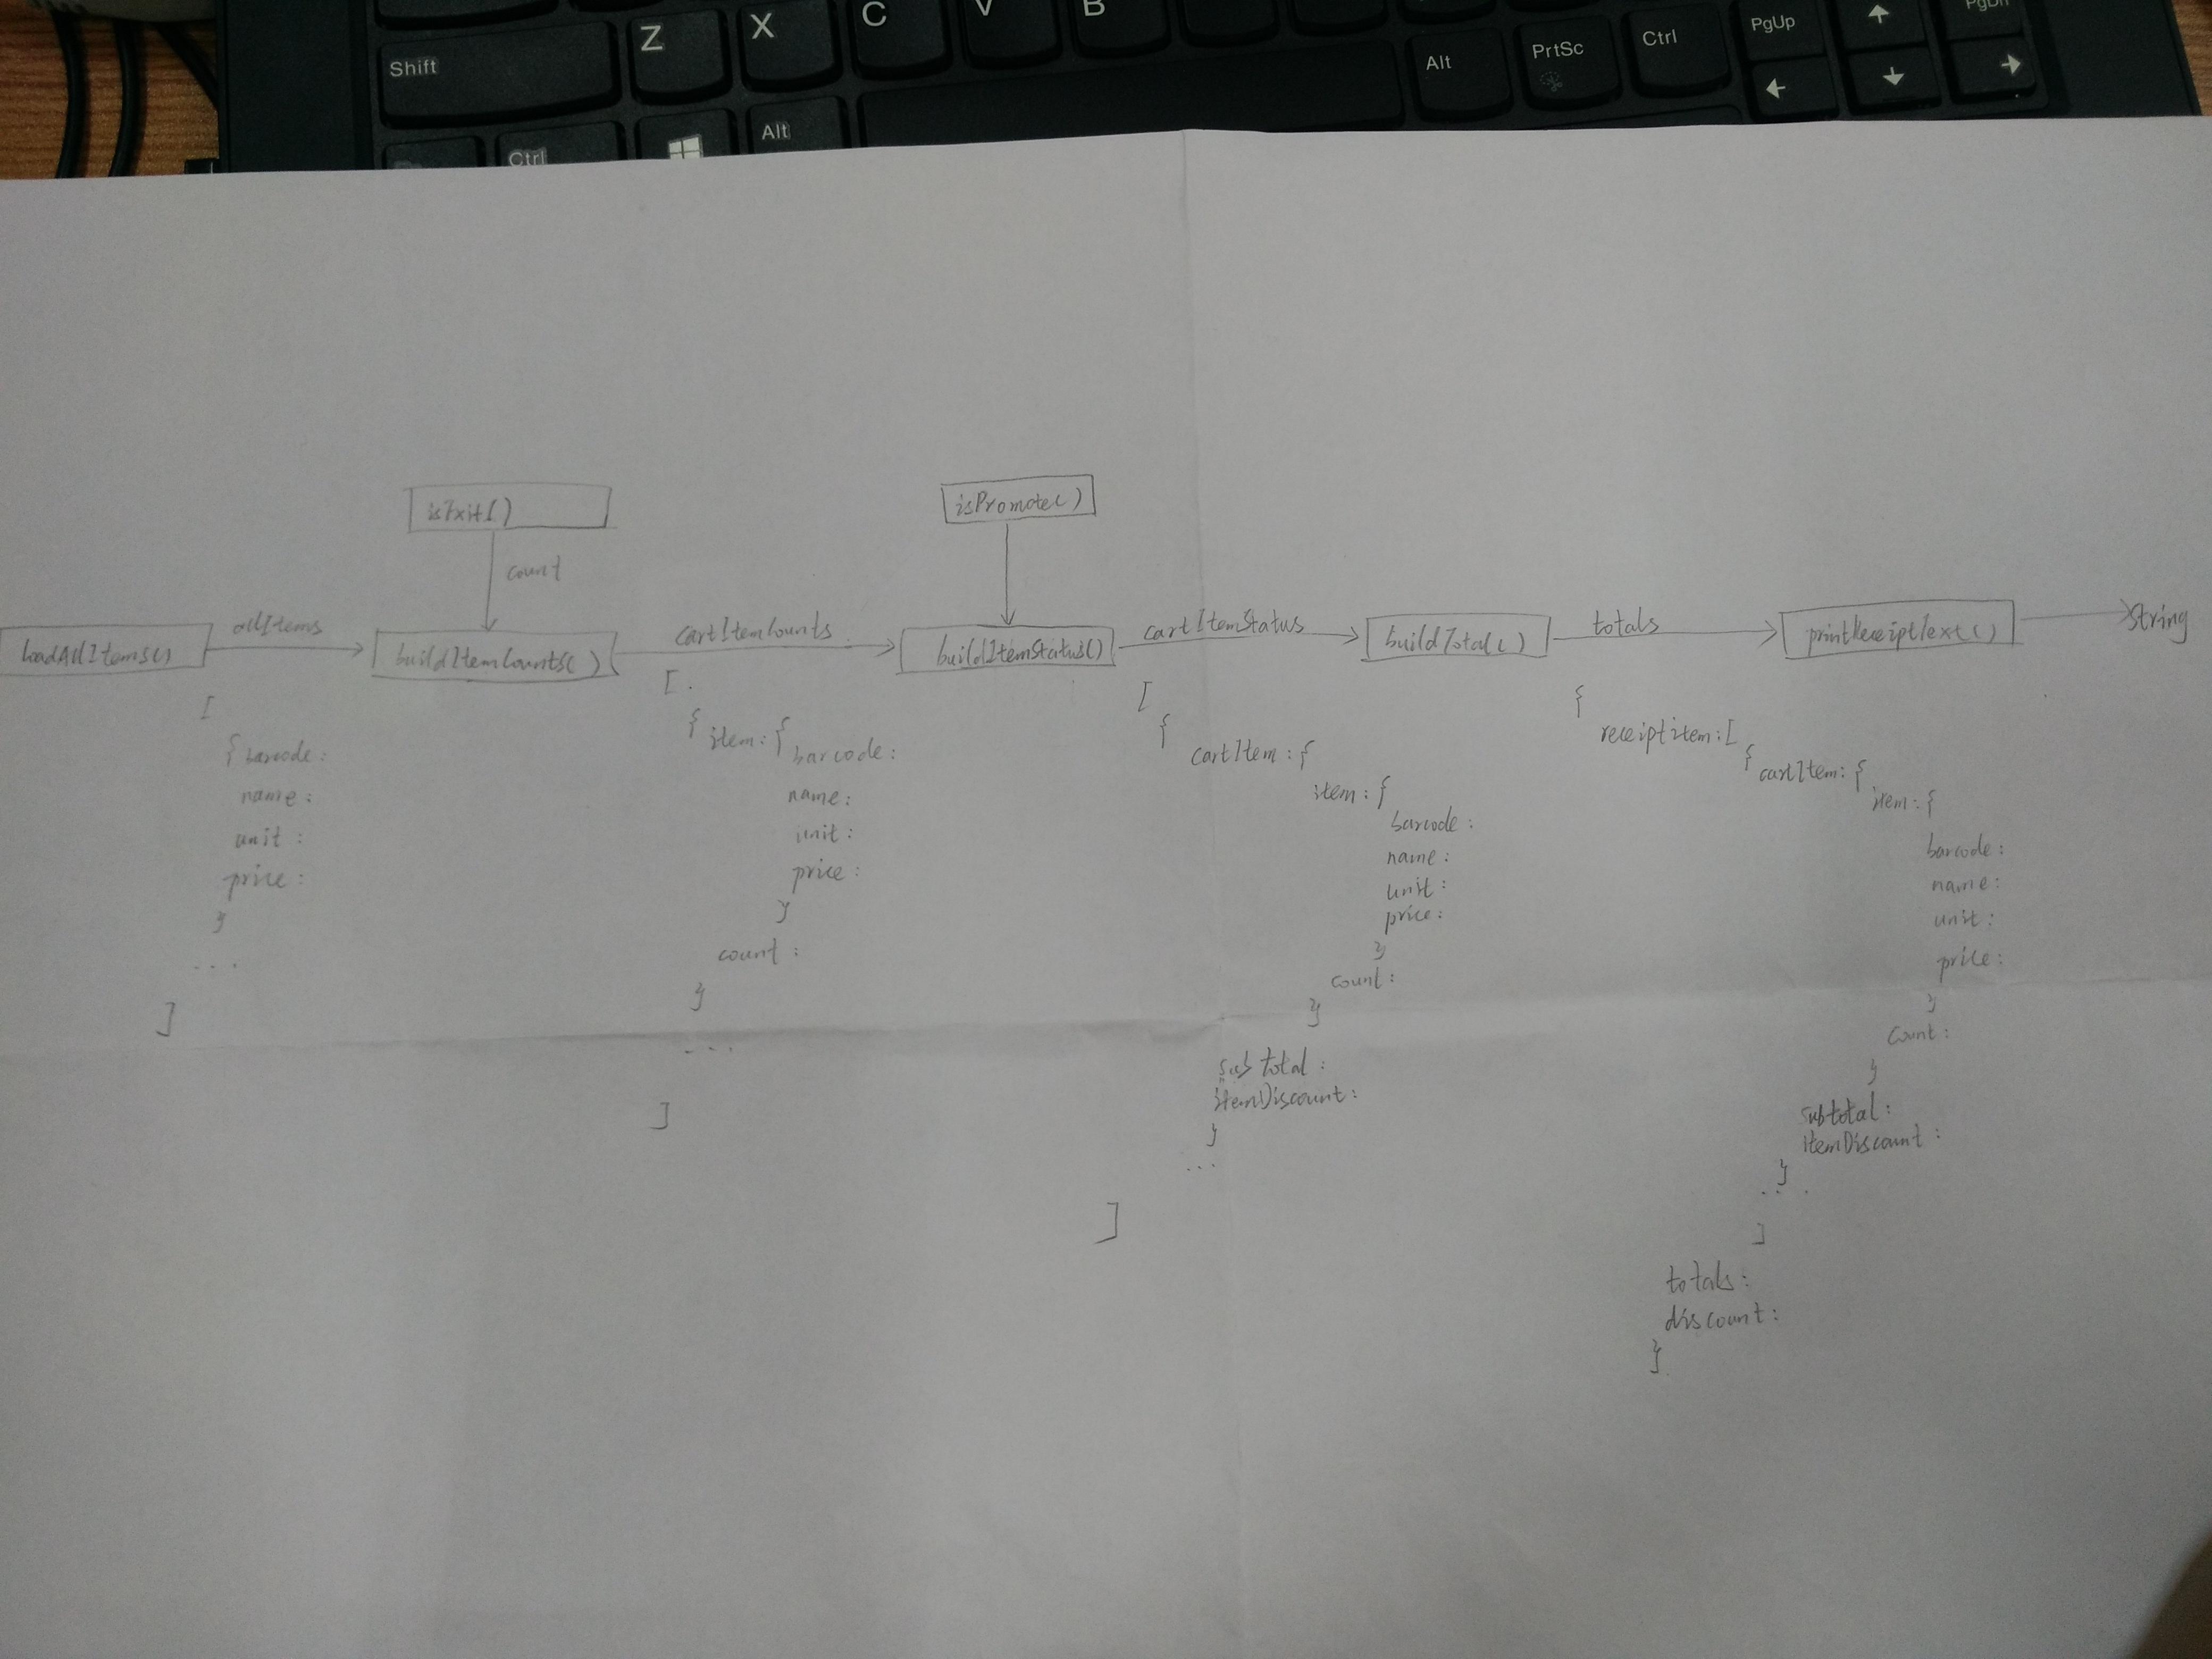 Shift
Z
X
C
V
B
Alt
PrtSc
Ctrl
PgUp
PgDn
Ctrl
Alt
isExit()
isPromote()
count
loadAllItems()
allItems
buildItemCounts()
cartItemCounts
buildItemStatus()
cartItemStatus
buildTotal()
totals
printReceiptText()
String
[
{ barcode:
name:
unit:
price:
}
...
]
[
{ item: { barcode:
name:
unit:
price:
}
count:
}
...
]
[
{
cartItem: {
item: {
barcode:
name:
unit:
price:
}
count:
}
subtotal:
itemDiscount:
}
...
]
{
receiptitem: [
{ cartItem: {
item: {
barcode:
name:
unit:
price:
}
count:
}
subtotal:
itemDiscount:
}
...
]
totals:
discount:
}